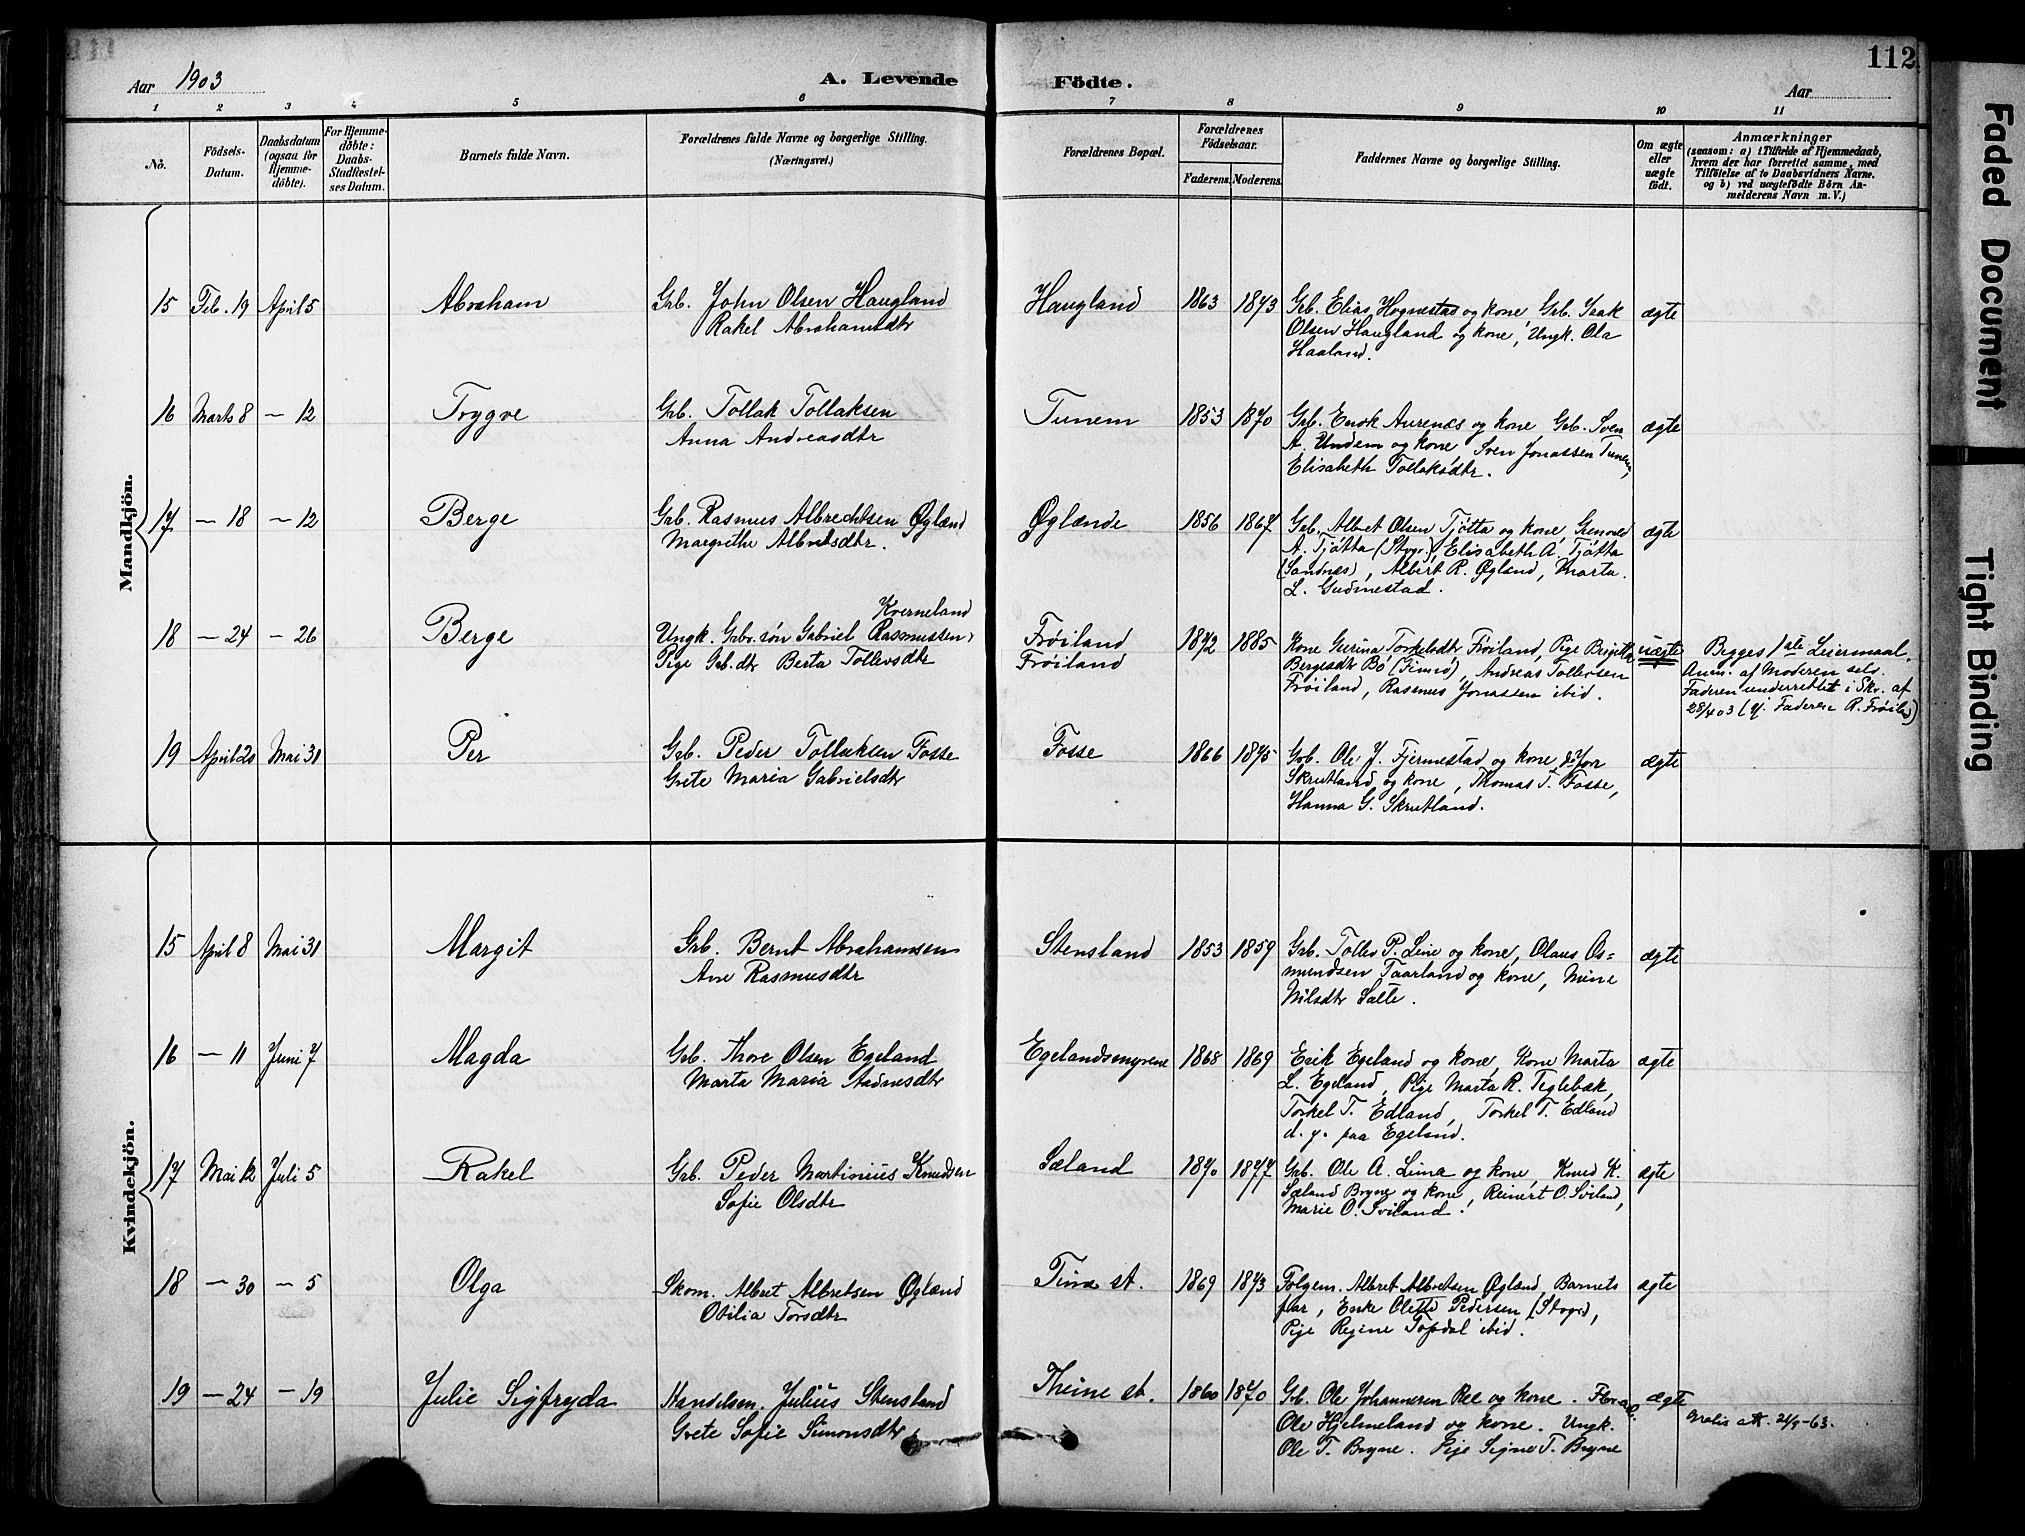 112
Aar 1903
A. Levende Födte.
Aar
1 2 3 4 5 6 7 8 9 10 11
Nö.
Födsels-Datum.
Daabsdatum (ogsaa for Hjemme-döbte).
For Hjemme-döbte: Daabs-Stadfestel-ses Datum.
Barnets fulde Navn.
Forældrenes fulde Navne og borgerlige Stilling. (Næringsvei.)
Forældrenes Bopæl.
Forældrenes Födselsaar.
Faderens. Moderens.
Faddernes Navne og borgerlige Stilling.
Om ægte eller uægte födt.
Anmærkninger
(saasom: a) i Tilfælde af Hjemmedaab, hvem der har forrettet samme, med Tilföielse af to Daabsvidners Navne. og b) ved uægtefödte Börn An-melderens Navn m. V.)
Mandkjön.
15 Feb. 19 April 5 Abraham Grb. John Olsen Haugland Haugland 1863 1873 Grb. Elias Hognestad og kone Grb. Isak ægte
Rakel Abrahamsdtr Olsen Haugland og kone, Ungk. Ola
Haaland.
16 Marts 8 — 12 Trygve Grb. Tollak Tollaksen Tunem 1853 1870 Grb. Enok Aurenes og kone Grb. Sven ægte
Anna Andreasdtr A. Undem og kone, Sven Jonassen Tunem,
Elisabeth Tollaksdtr.
17 — 18 — 12 Berge Grb. Rasmus Albrechtsen Øglænd Øglænde 1856 1867 Grb. Albret Olsen Tjøtta og kone, ægte
Margrethe Albretsdtr. A. Tjøtta (Stvgr.), Elisabeth A. Tjøtta
(Sandnæs), Albert R. Øglænd, Marta
L. Gudmestad.
Kverneland
18 — 24 — 26 Berge Ungk. Grbr.søn Gabriel Rasmussen, Frøiland 1872 1885 Kone Gurina Torkelsdtr Frøiland, Pige Brigitte uægte Begges 1ste Leiermaal.
Pige Grb.dtr Berta Tollevsdtr Frøiland Bergesdtr Bø (Time), Andreas Tollevsen Anm. af Moderen selv.
Frøiland, Rasmus Jonassen ibid. Faderen underrettet i Skr. af
28/4 03 (Faderen R. Frøild)
19 April 20 Mai 31 Per Grb. Peder Tollaksen Fosse Fosse 1866 1875 Grb. Ole J. Fjermestad og kone, do Jon ægte
Grete Maria Gabrielsdtr Skrutland og kone, Thomas T. Fosse,
Hanna G. Skrutland.
Kvindekjön.
15 April 8 Mai 31 Margit Grb. Bernt Abrahamsen Stensland 1853 1859 Grb. Tollev P. Line og kone, Olaus Os= ægte
Ane Rasmusdtr mundsen Taarland og kone, Mine
Nilsdtr Salte.
16 — 11 Juni 7 Magda Grb. Thore Olsen Egeland Egelandsmyrene 1868 1869 Erik Egeland og kone, Kone Marta ægte
Marta Maria Aadnesdtr L. Egeland, Pige Marta R. Teglebæk,
Torkel T. Edland, Torkel T. Edland
d. y. paa Egeland.
17 Mai 12 Juli 5 Rakel Grb. Peder Martinius Knudsen Sæland 1870 1877 Grb. Ole A. Lima og kone, Knud K. ægte
Sofie Olsdtr Sæland Bryne og kone, Reinert O. Sviland,
Marie O. Sviland.
18 — 30 — 5 Olga Skom. Albret Albretsen Øglænd Time st. 1869 1873 Folgem. Albret Albretsen Øglænd Barnets ægte
Otilia Torsdtr far, Enke Olette Pedersen (Stvgr),
Pige Regine Topdal ibid.
19 — 24 — 19 Julie Sigfryda Handelsm. Julius Stensland Theime st. 1860 1870 Grb. Ole Johannesen Ree og kone. ægte
Grete Sofie Simonsdtr Ole Hjelmeland og kone. Ungk. Gratis att. 21/9-63.
Ole T. Bryne. Pige Signe T. Bryne
Faded Document
Tight Binding